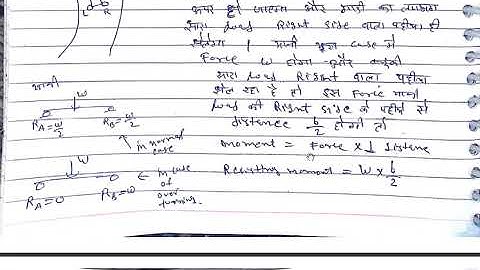 L b R
ऊपर हो जाएगा और गाड़ी का लगभग
सारा load Right side वाला पहीया ही
झेलेगा । यानी इस case में
Force W होगा
सारा load Right वाला पहीया
झेल रहा है तो इस Force यानी
load की Right side के पहीये से
distance b/2 होगी तो
moment = Force × ⊥ distance
Resulting moment = W × b/2
यानी
W
R_A = W/2 R_B = W/2
in normal case
W
R_A = 0 R_B = W
in case of over turning.